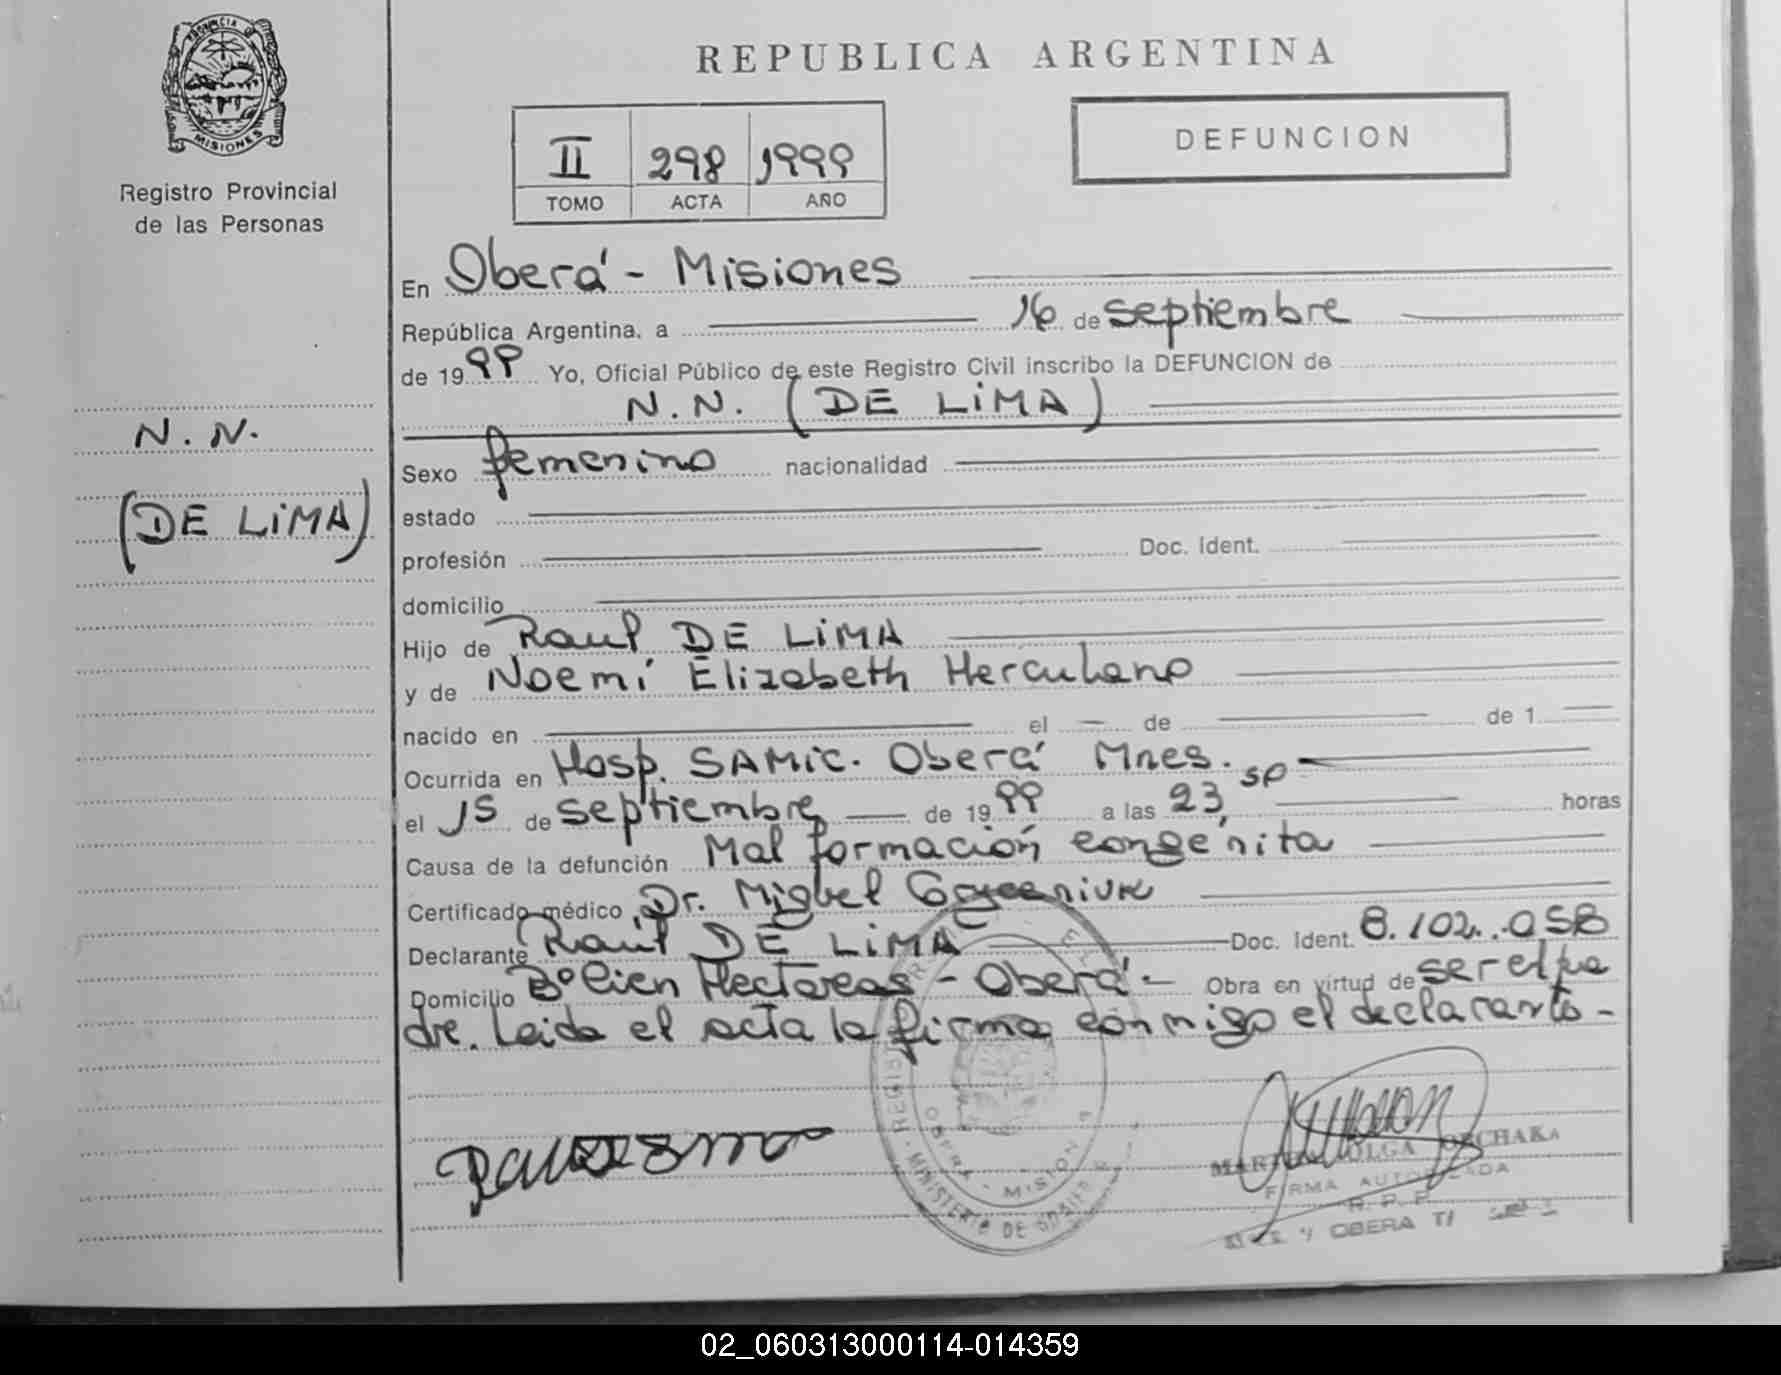 PROVINCIA DE
MISIONES
Registro Provincial
de las Personas
N. N.
(DE LiMA)
REPUBLICA ARGENTINA
II 298 1999
TOMO ACTA AÑO
DEFUNCION
En Oberá - Misiones
República Argentina, a 16 de septiembre
de 1999 Yo, Oficial Público de este Registro Civil inscribo la DEFUNCION de
N. N. (DE LiMA)
Sexo femenino nacionalidad
estado
profesión Doc. Ident.
domicilio
Hijo de Raul DE LiMA
y de Noemí Elizabeth Herculano
nacido en el — de de 1
Ocurrida en Hosp. SAMIC. Oberá Mnes.
el 15 de septiembre de 1999 a las 23,50 horas
Causa de la defunción Mal formación congénita
Certificado médico Dr. Miguel
Declarante Raúl DE LiMA Doc. Ident. 8.102.058
Domicilio B° Cien Hectareas - Oberá - Obra en virtud de ser el pa
dre. Leida el acta la firma conmigo el declarante -
OBERA - MISIONES
MINISTERIO DE
OLGA
FIRMA AUTORIZADA
R. P. P.
OBERA
02_060313000114-014359